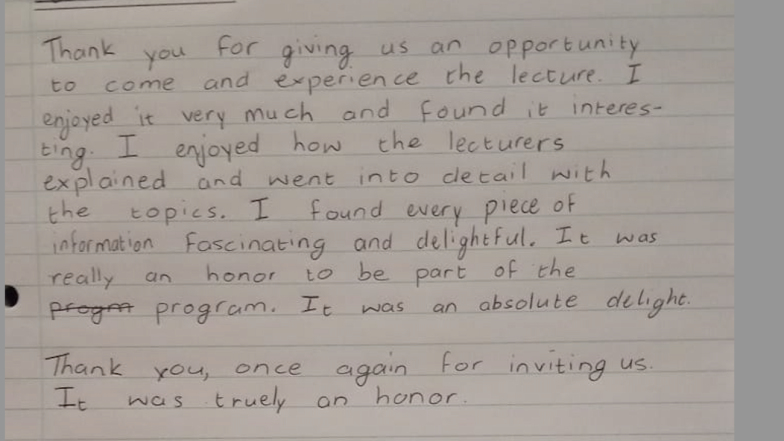 Thank you for giving us an opportunity
to come and experience the lecture. I
enjoyed it very much and found it interes-
ting. I enjoyed how the lecturers
explained and went into detail with
the topics. I found every piece of
information fascinating and delightful. It was
really an honor to be part of the
progm program. It was an absolute delight.
Thank you, once again for inviting us.
It was truely an honor.